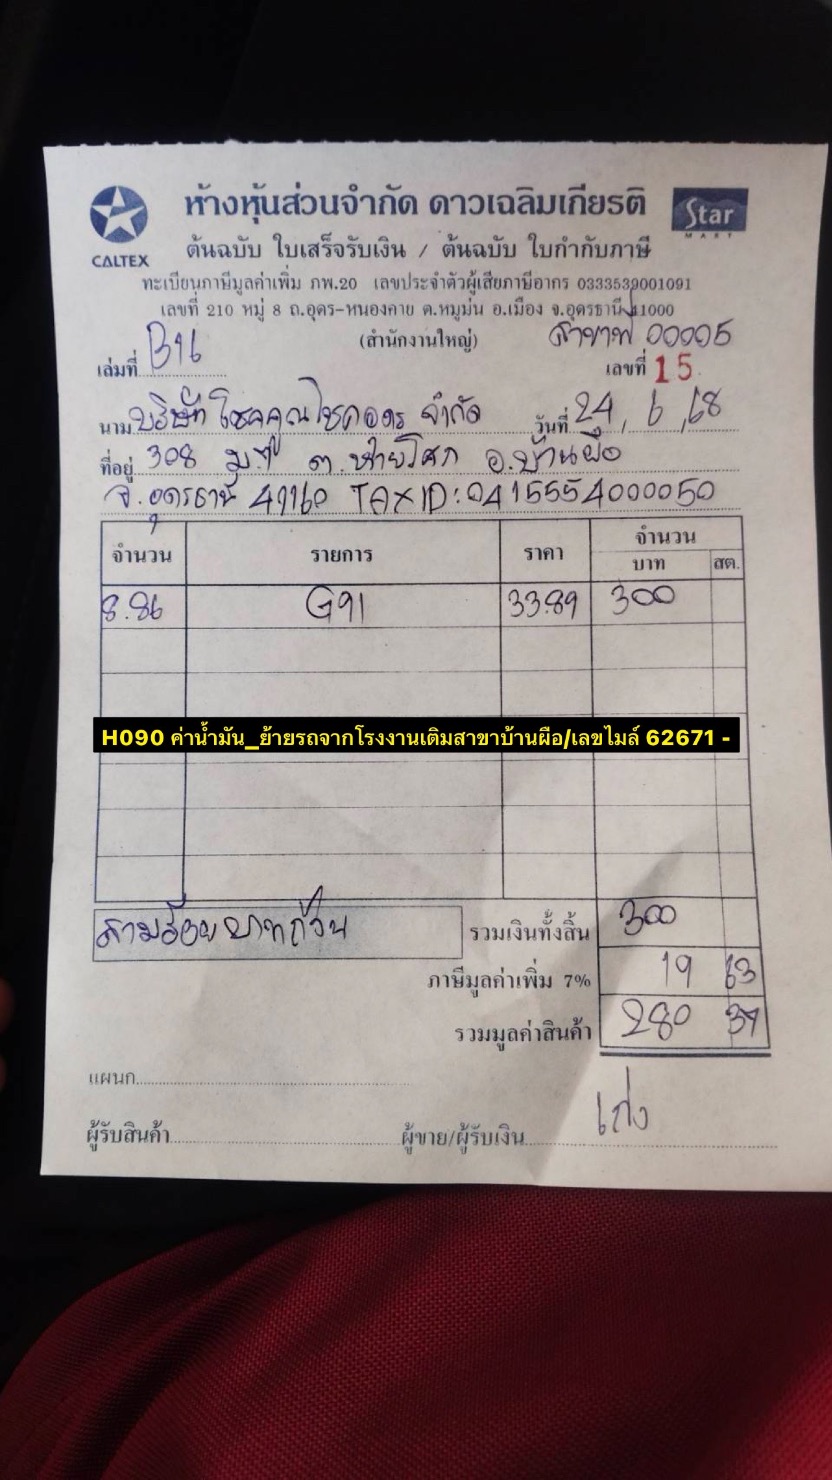 CALTEX
ห้างหุ้นส่วนจำกัด ดาวเฉลิมเกียรติ
Star
MART
ต้นฉบับ ใบเสร็จรับเงิน / ต้นฉบับ ใบกำกับภาษี
ทะเบียนภาษีมูลค่าเพิ่ม ภพ.20 เลขประจำตัวผู้เสียภาษีอากร 0333539001091
เลขที่ 210 หมู่ 8 ถ.อุดร-หนองคาย ต.หมูม่น อ.เมือง จ.อุดรธานี 41000
(สำนักงานใหญ่) สาขาที่ 00005
เล่มที่ B16 เลขที่ 15
นาม บริษัท โชคคูณไชคอดร จำกัด วันที่ 24, 6, 68
ที่อยู่ 308 ต.หายโศก อ.บ้านผือ
จ.อุดรธานี 41160 TAX ID: 0415554000050
จำนวน รายการ ราคา จำนวน
บาท สต.
8.86 G91 33.89 300
H090 ค่าน้ำมัน_ย้ายรถจากโรงงานเติมสาขาบ้านผือ/เลขไมล์ 62671 -
สามร้อยบาทถ้วน รวมเงินทั้งสิ้น 300
ภาษีมูลค่าเพิ่ม 7% 19 63
รวมมูลค่าสินค้า 280 37
แผนก
ผู้รับสินค้า ผู้ขาย/ผู้รับเงิน เก่ง